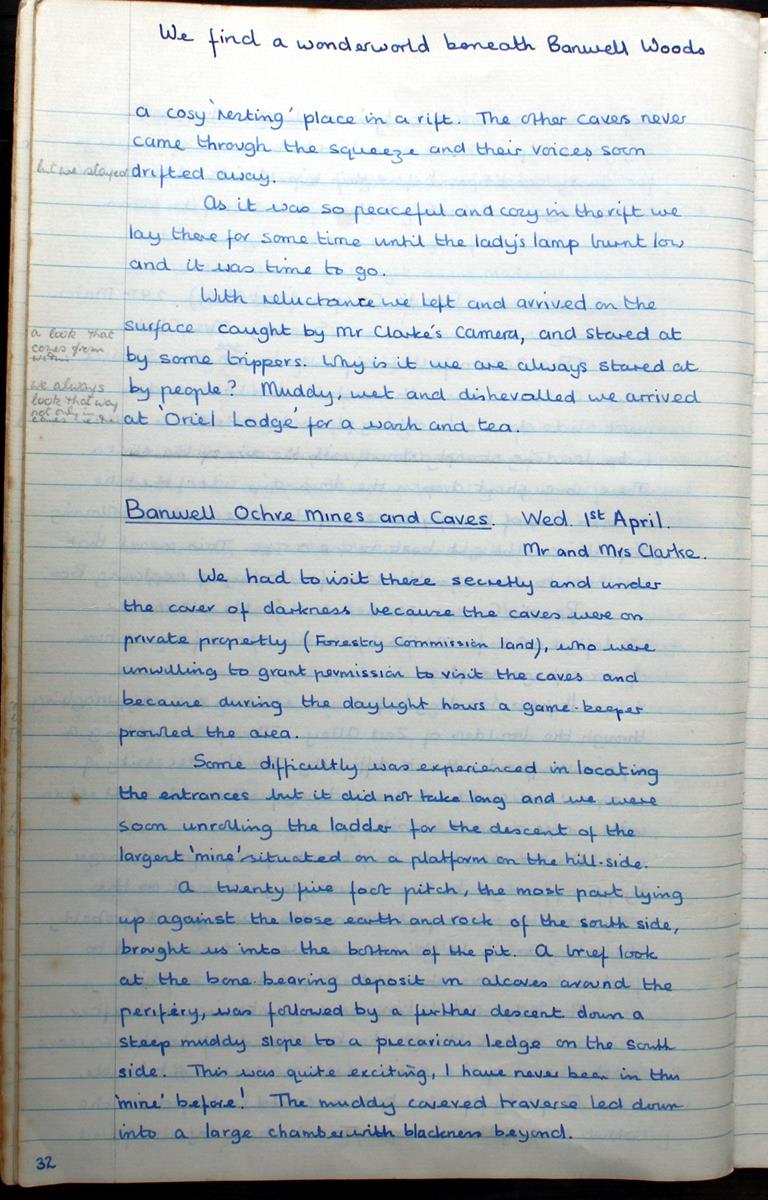 We find a wonderworld beneath Banwell Woods
a cosy 'resting' place in a rift. The other cavers never
came through the squeeze and their voices soon
but we stayed
drifted away.
As it was so peaceful and cozy in the rift we
lay there for some time until the lady's lamp burnt low
and it was time to go.
With reluctance we left and arrived on the
surface caught by Mr Clarke's Camera, and stared at
a look that
comes from
by some trippers. Why is it we are always stared at
by people? Muddy, wet and dishevalled we arrived
we always
look that way
not only in
at 'Oriel Lodge' for a wash and tea.
Banwell Ochre Mines and Caves. Wed. 1st April.
Mr and Mrs Clarke.
We had to visit these secretly and under
the cover of darkness because the caves were on
private propertly (Forestry Commission land), who were
unwilling to grant permission to visit the caves and
because during the daylight hours a game-keeper
prowled the area.
Some difficultly was experienced in locating
the entrances but it did not take long and we were
soon unrolling the ladder for the descent of the
largest 'mine' situated on a platform on the hill-side.
A twenty five foot pitch, the most part lying
up against the loose earth and rock of the south side,
brought us into the bottom of the pit. A brief look
at the bone-bearing deposit in alcoves around the
perifery, was followed by a further descent down a
steep muddy slope to a precarious ledge on the south
side. This was quite exciting, I have never been in this
'mine' before! The muddy covered traverse led down
into a large chamber with blackness beyond.
32